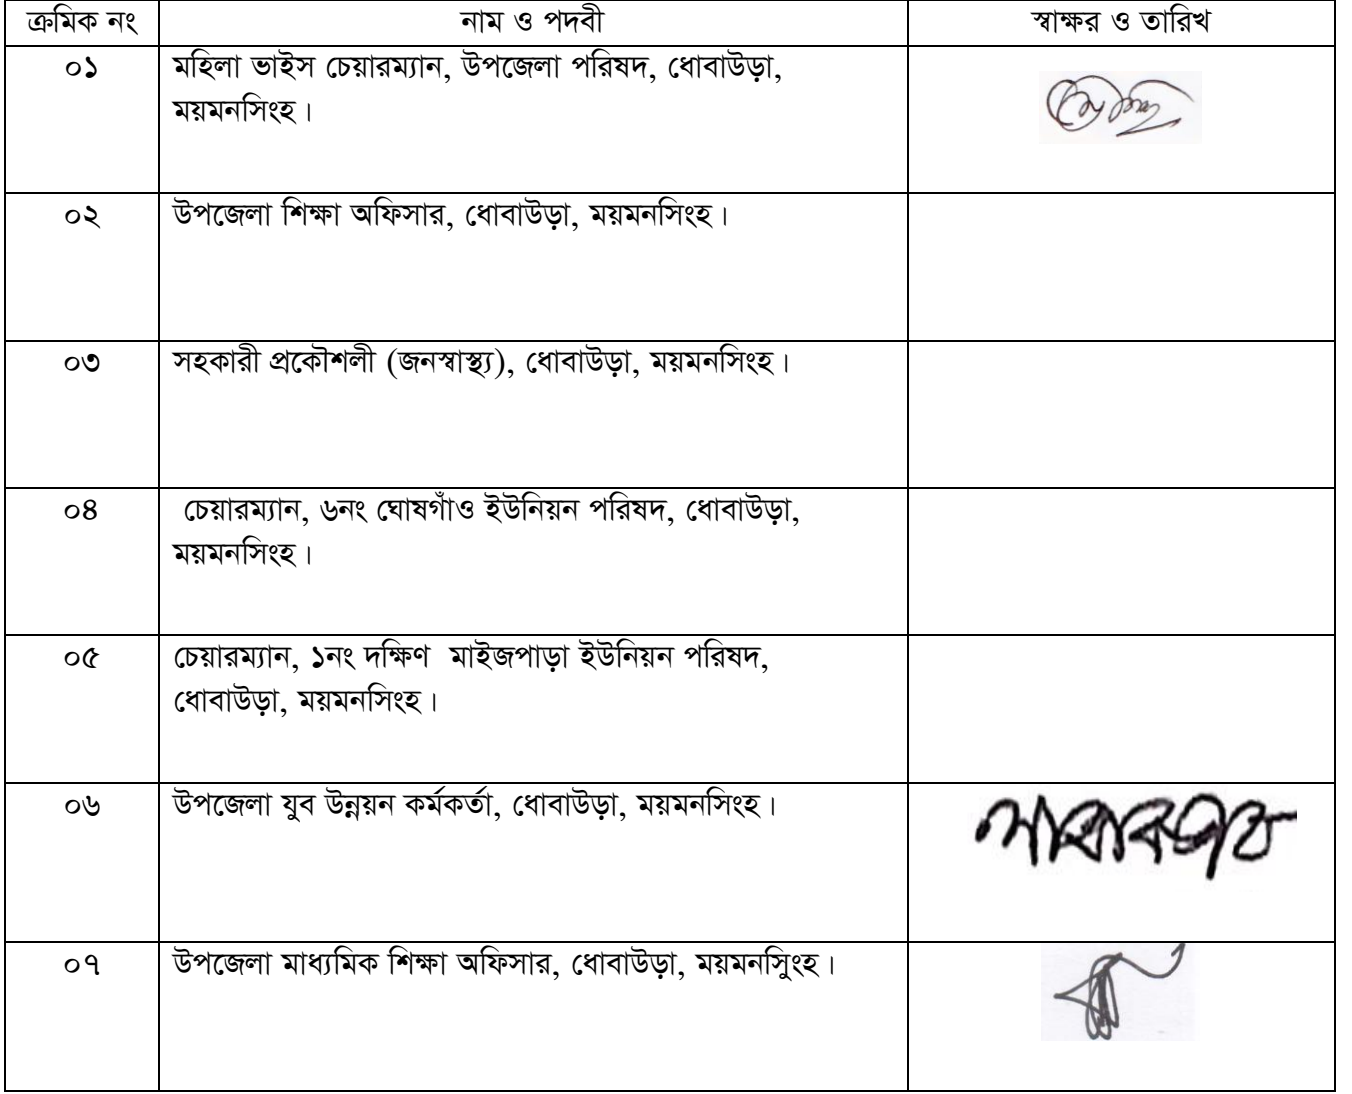 ক্রমিক নং নাম ও পদবী স্বাক্ষর ও তারিখ
০১ মহিলা ভাইস চেয়ারম্যান, উপজেলা পরিষদ, ধোবাউড়া,
ময়মনসিংহ।
০২ উপজেলা শিক্ষা অফিসার, ধোবাউড়া, ময়মনসিংহ।
০৩ সহকারী প্রকৌশলী (জনস্বাস্থ্য), ধোবাউড়া, ময়মনসিংহ।
০৪ চেয়ারম্যান, ৬নং ঘোষগাঁও ইউনিয়ন পরিষদ, ধোবাউড়া,
ময়মনসিংহ।
০৫ চেয়ারম্যান, ১নং দক্ষিণ মাইজপাড়া ইউনিয়ন পরিষদ,
ধোবাউড়া, ময়মনসিংহ।
০৬ উপজেলা যুব উন্নয়ন কর্মকর্তা, ধোবাউড়া, ময়মনসিংহ।
০৭ উপজেলা মাধ্যমিক শিক্ষা অফিসার, ধোবাউড়া, ময়মনসিুংহ।